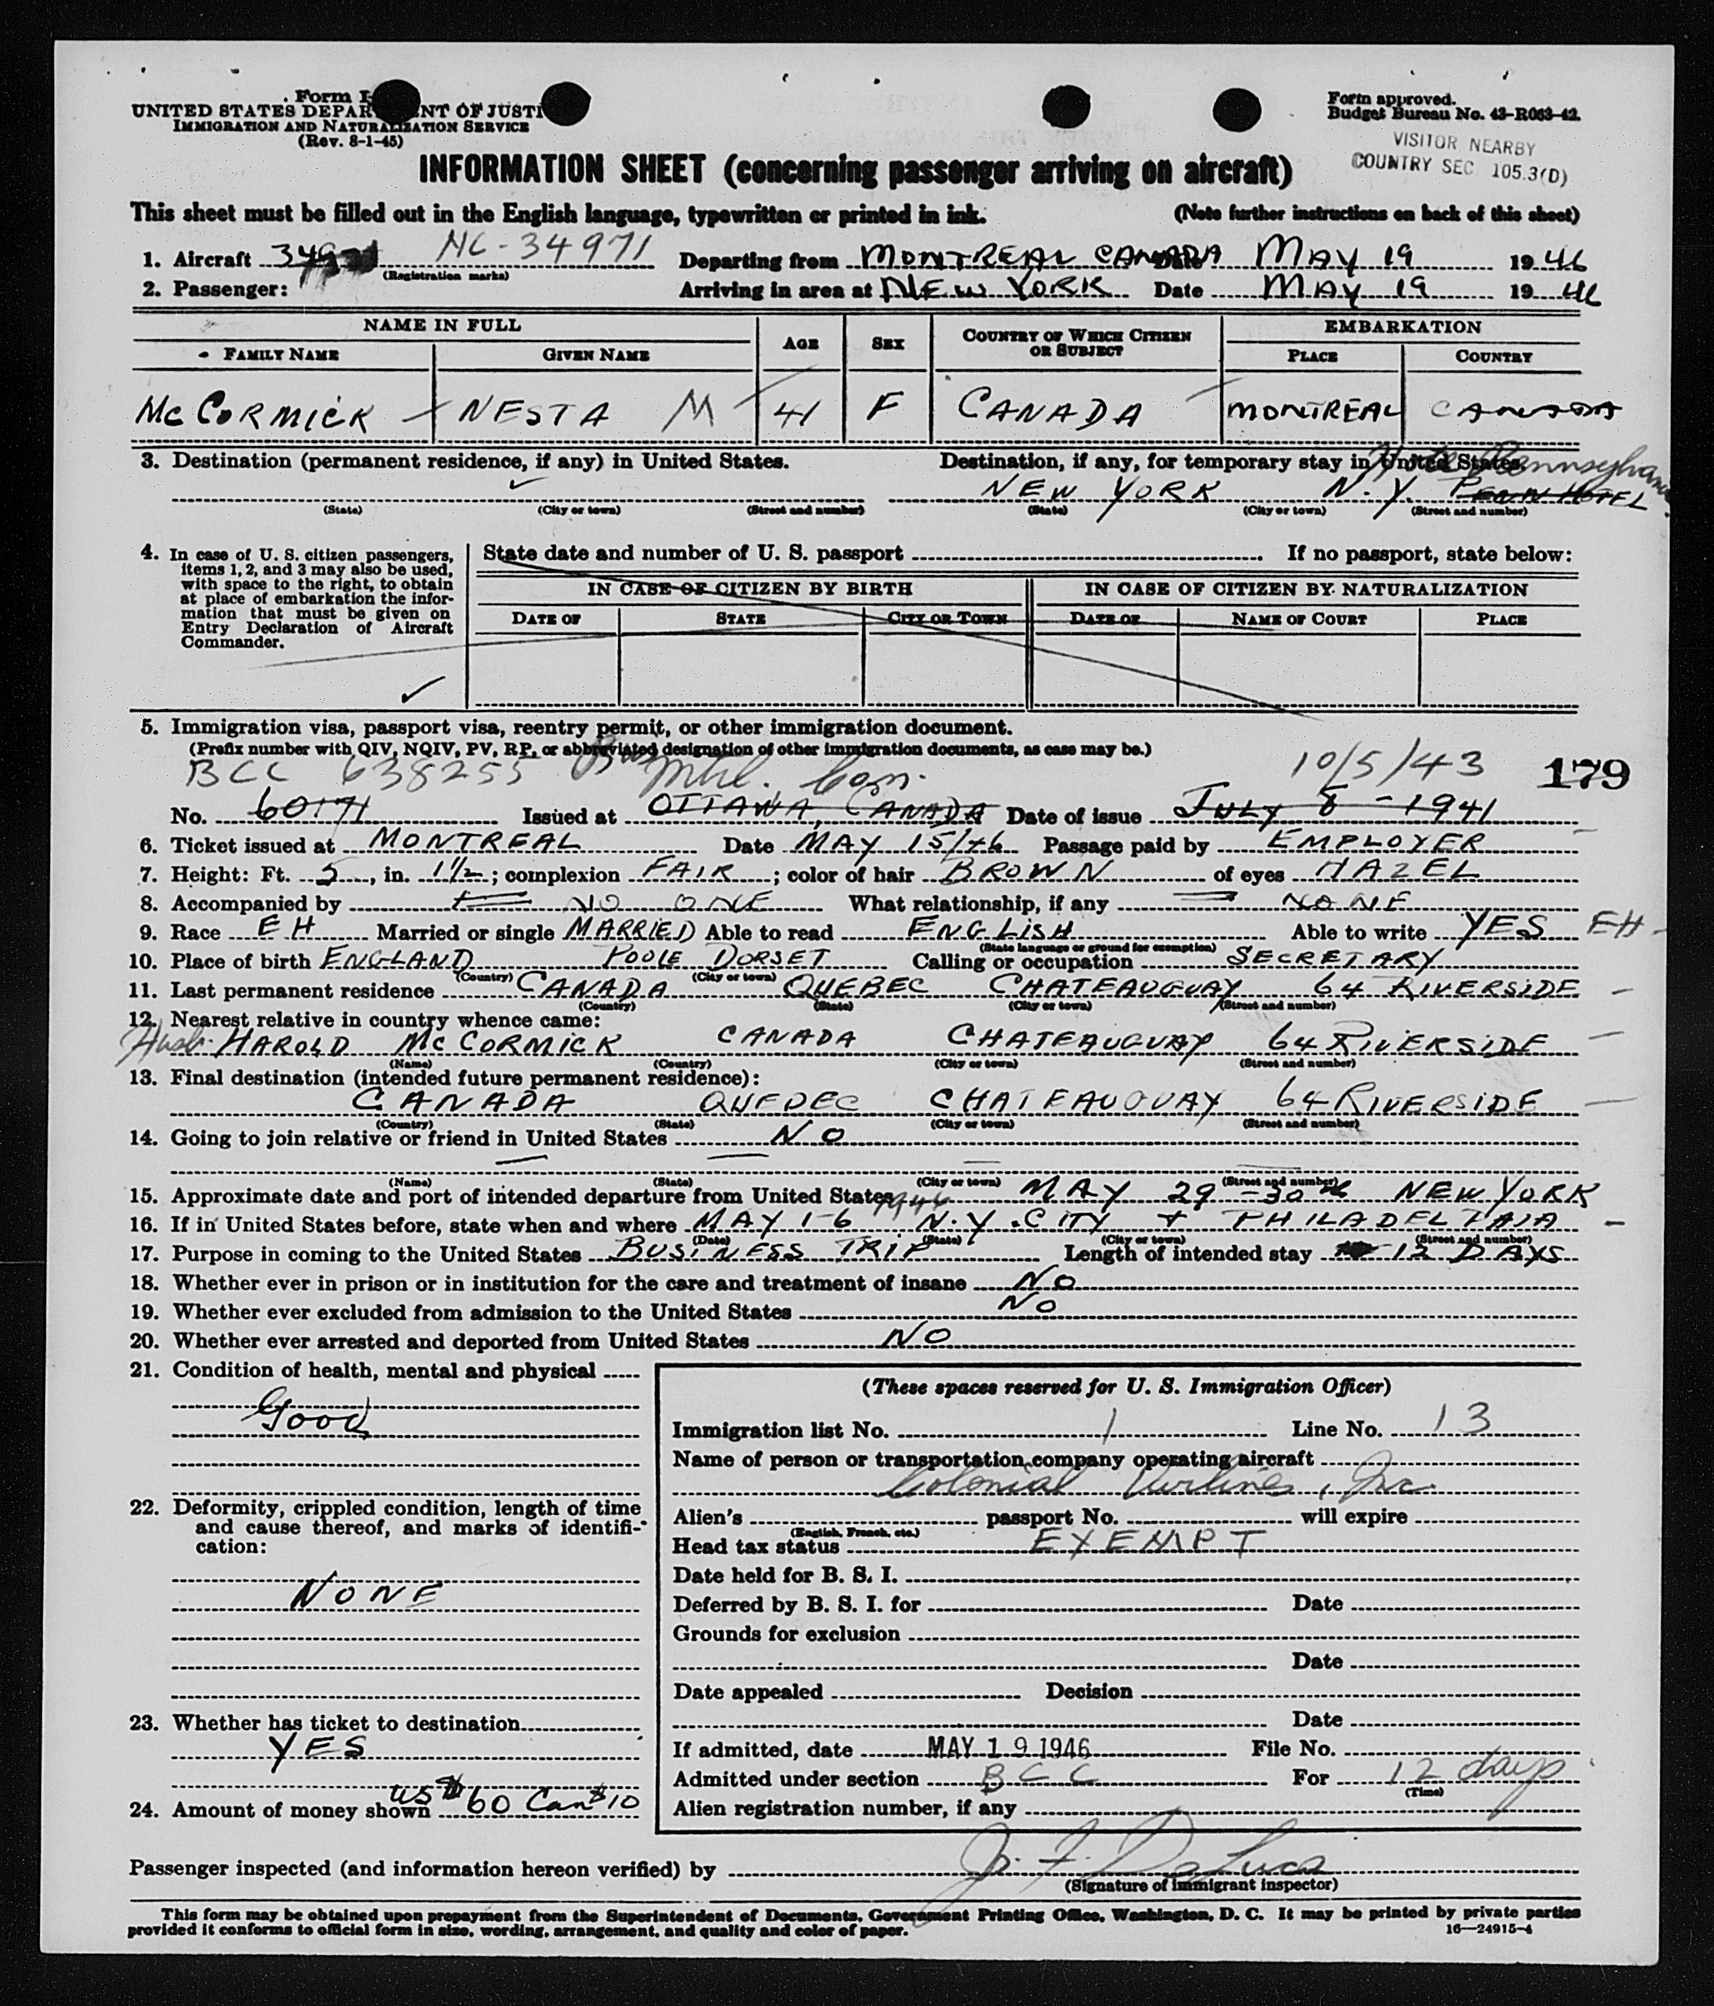 Form I-
UNITED STATES DEPAR NT OF JUSTI
IMMIGRATION AND NATURALIZATION SERVICE
(Rev. 8-1-45)
Form approved.
Budget Bureau No. 43-R063-42.
VISITOR NEARBY
COUNTRY SEC 105.3(D)
INFORMATION SHEET (concerning passenger arriving on aircraft)
This sheet must be filled out in the English language, typewritten or printed in ink. (Note further instructions on back of this sheet)
1. Aircraft NC-34971 Departing from MONTREAL CANADA Date MAY 19 1946
(Registration marks)
2. Passenger: Arriving in area at NEW YORK Date MAY 19 1946
NAME IN FULL AGE SEX COUNTRY OF WHICH CITIZEN OR SUBJECT EMBARKATION
FAMILY NAME GIVEN NAME PLACE COUNTRY
McCORMICK NESTA M 41 F CANADA MONTREAL CANADA
3. Destination (permanent residence, if any) in United States. Destination, if any, for temporary stay in United States
Hotel Pennsylvania
NEW YORK N.Y. PENN HOTEL
(State) (City or town) (Street and number) (State) (City or town) (Street and number)
4. In case of U. S. citizen passengers, items 1, 2, and 3 may also be used, with space to the right, to obtain at place of embarkation the information that must be given on Entry Declaration of Aircraft Commander.
State date and number of U. S. passport If no passport, state below:
IN CASE OF CITIZEN BY BIRTH IN CASE OF CITIZEN BY NATURALIZATION
DATE OF STATE CITY OR TOWN DATE OF NAME OF COURT PLACE
5. Immigration visa, passport visa, reentry permit, or other immigration document.
(Prefix number with QIV, NQIV, PV, RP, or abbreviated designation of other immigration documents, as case may be.)
BCC 638255 Mtrl. Can. 10/5/43 179
No. 60171 Issued at OTTAWA, CANADA Date of issue JULY 8 - 1941
6. Ticket issued at MONTREAL Date MAY 15/46 Passage paid by EMPLOYER
7. Height: Ft. 5, in. 1½; complexion FAIR; color of hair BROWN of eyes HAZEL
8. Accompanied by NO ONE What relationship, if any NONE
9. Race EH Married or single MARRIED Able to read ENGLISH Able to write YES EH
(State language or ground for exemption)
10. Place of birth ENGLAND POOLE DORSET Calling or occupation SECRETARY
(Country) (City or town)
11. Last permanent residence CANADA QUEBEC CHATEAUGUAY 64 RIVERSIDE
(Country) (State) (City or town) (Street and number)
12. Nearest relative in country whence came:
Husb. HAROLD McCORMICK CANADA CHATEAUGUAY 64 RIVERSIDE
(Name) (Country) (City or town) (Street and number)
13. Final destination (intended future permanent residence):
CANADA QUEBEC CHATEAUGUAY 64 RIVERSIDE
(Country) (State) (City or town) (Street and number)
14. Going to join relative or friend in United States NO
(Name) (State) (City or town) (Street and number)
15. Approximate date and port of intended departure from United States MAY 29-30th NEW YORK
16. If in United States before, state when and where MAY 1-6 1946 N.Y. CITY + PHILADELPHIA
(Date) (State) (City or town) (Street and number)
17. Purpose in coming to the United States BUSINESS TRIP Length of intended stay 12 DAYS
18. Whether ever in prison or in institution for the care and treatment of insane NO
19. Whether ever excluded from admission to the United States NO
20. Whether ever arrested and deported from United States NO
21. Condition of health, mental and physical
Good
22. Deformity, crippled condition, length of time and cause thereof, and marks of identification:
NONE
23. Whether has ticket to destination
YES
24. Amount of money shown US $60 Can $10
(These spaces reserved for U. S. Immigration Officer)
Immigration list No. 1 Line No. 13
Name of person or transportation company operating aircraft
Colonial Airlines, Inc.
Alien's passport No. will expire
(English, French, etc.)
Head tax status EXEMPT
Date held for B. S. I.
Deferred by B. S. I. for Date
Grounds for exclusion
Date
Date appealed Decision
Date
If admitted, date MAY 19 1946 File No.
Admitted under section BCC For 12 days
(Time)
Alien registration number, if any
Passenger inspected (and information hereon verified) by J. F. DeLuca
(Signature of immigrant inspector)
This form may be obtained upon prepayment from the Superintendent of Documents, Government Printing Office, Washington, D. C. It may be printed by private parties
provided it conforms to official form in size, wording, arrangement, and quality and color of paper. 16—24915-4